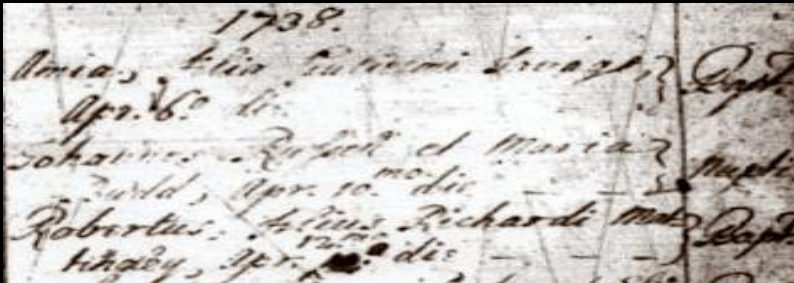 1738.
Amia, filia Gulielmi Savage, } Bapt.
Apr. 6.o die
Johannes Russell et Maria } Nupti
Budd, Apr. 10.mo die - - -
Robertus filius Richardi Mat- } Bapt.
Apr. die - - -